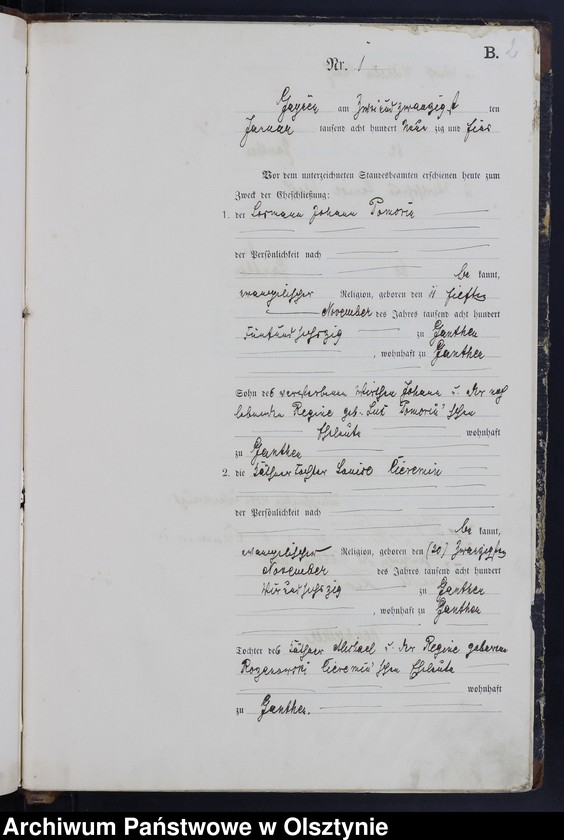 B. 2
Nr. 1
am Zweiundzwanzigsten
Januar tausend acht hundert neun zig und vier
Vor dem unterzeichneten Standesbeamten erschienen heute zum
Zweck der Eheschließung:
1. der Johann Pomorin
der Persönlichkeit nach
be kannt,
evangelischer Religion, geboren den 11 elften
November des Jahres tausend acht hundert
fünfundsechszig zu Ganthen
, wohnhaft zu Ganthen
Sohn des verstorbenen Wirthen Johann u. der noch
lebenden Regine geb. Pomorin'schen
Eheleute wohnhaft
zu Ganthen
2. die Käthnertochter Louise
der Persönlichkeit nach
be kannt,
evangelischer Religion, geboren den (20) Zwanzigsten
November des Jahres tausend acht hundert
vierundsechszig zu Ganthen
, wohnhaft zu Ganthen
Tochter des Käthner Michael u. der Regine geborene
'schen Eheleute
wohnhaft
zu Ganthen.
Archiwum Państwowe w Olsztynie